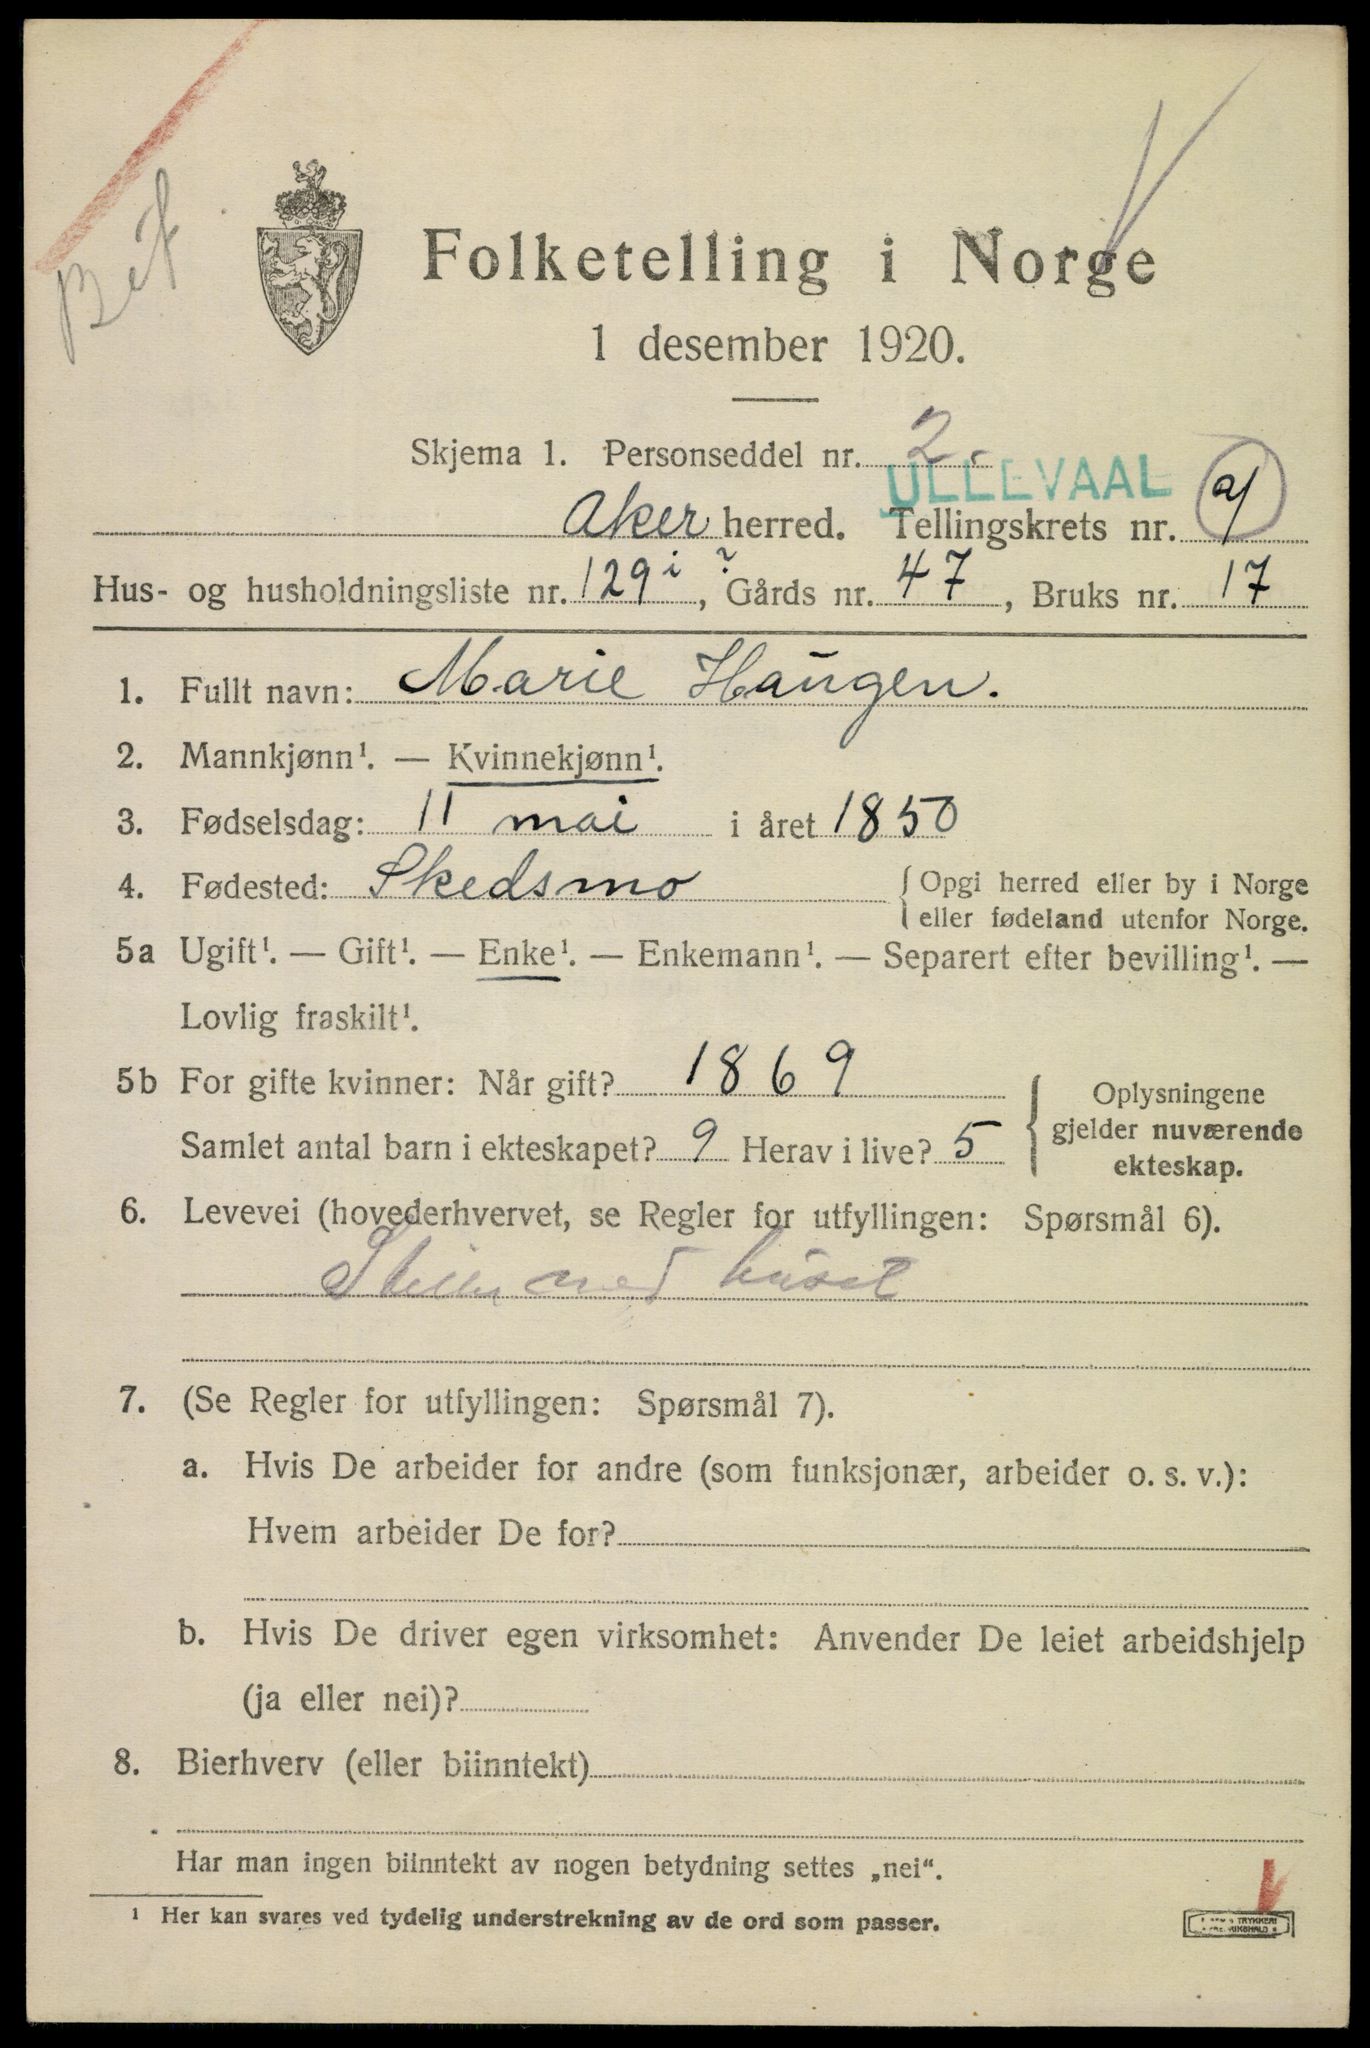 Bef
Folketelling i Norge
1 desember 1920.
Skjema 1. Personseddel nr. 2.
ULLEVAAL
Aker herred. Tellingskrets nr.
Hus- og husholdningsliste nr. 129 i ?, Gårds nr. 47, Bruks nr. 17
1. Fullt navn: Marie Haugen.
2. Mannkjønn¹. — Kvinnekjønn¹.
3. Fødselsdag: 11 mai i året 1850
4. Fødested: Skedsmo { Opgi herred eller by i Norge
eller fødeland utenfor Norge.
5a Ugift¹. — Gift¹. — Enke¹. — Enkemann¹. — Separert efter bevilling¹. —
Lovlig fraskilt¹.
5b For gifte kvinner: Når gift? 1869
Samlet antal barn i ekteskapet? 9 Herav i live? 5
{ Oplysningene
gjelder nuværende
ekteskap.
6. Levevei (hovederhvervet, se Regler for utfyllingen: Spørsmål 6).
Steller med huset
7. (Se Regler for utfyllingen: Spørsmål 7).
a. Hvis De arbeider for andre (som funksjonær, arbeider o. s. v.):
Hvem arbeider De for?
b. Hvis De driver egen virksomhet: Anvender De leiet arbeidshjelp
(ja eller nei)?
8. Bierhverv (eller biinntekt)
Har man ingen biinntekt av nogen betydning settes „nei“.
¹ Her kan svares ved tydelig understrekning av de ord som passer.